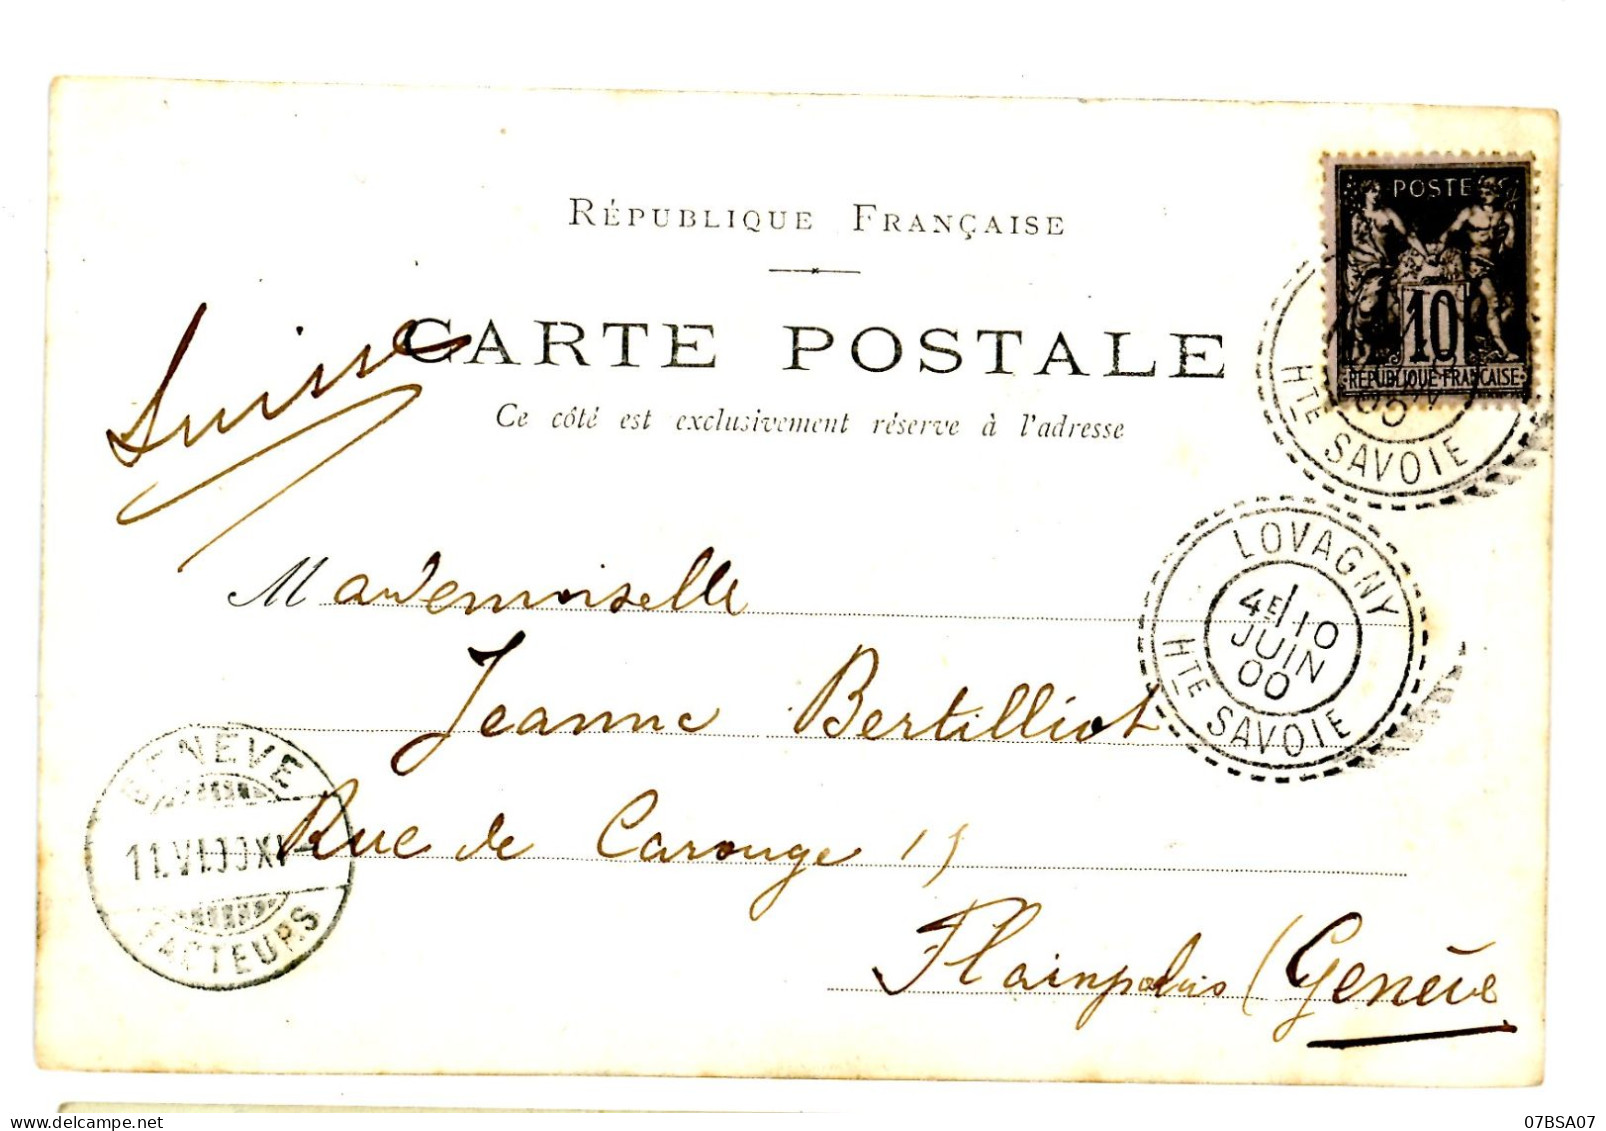 RÉPUBLIQUE FRANÇAISE
POSTE
10
RÉPUBLIQUE FRANÇAISE
CARTE POSTALE
Suisse
Ce côté est exclusivement réservé à l'adresse
HTE SAVOIE
LOVAGNY
4E 10
JUIN
00
HTE SAVOIE
Mademoiselle
Jeanne Bertilliot
Rue de Carouge 15
Plainpalais (Genève
GENÈVE
11.VI.00.XI
FACTEURS
07BSA07